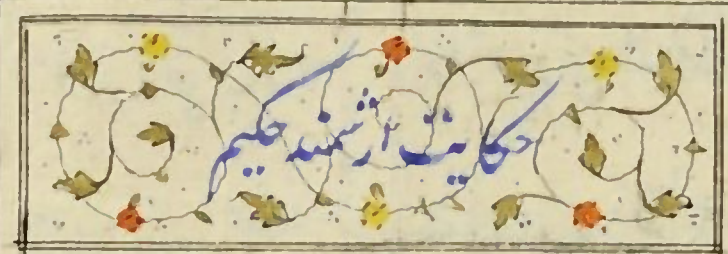 حکایت ارشمند حکیم